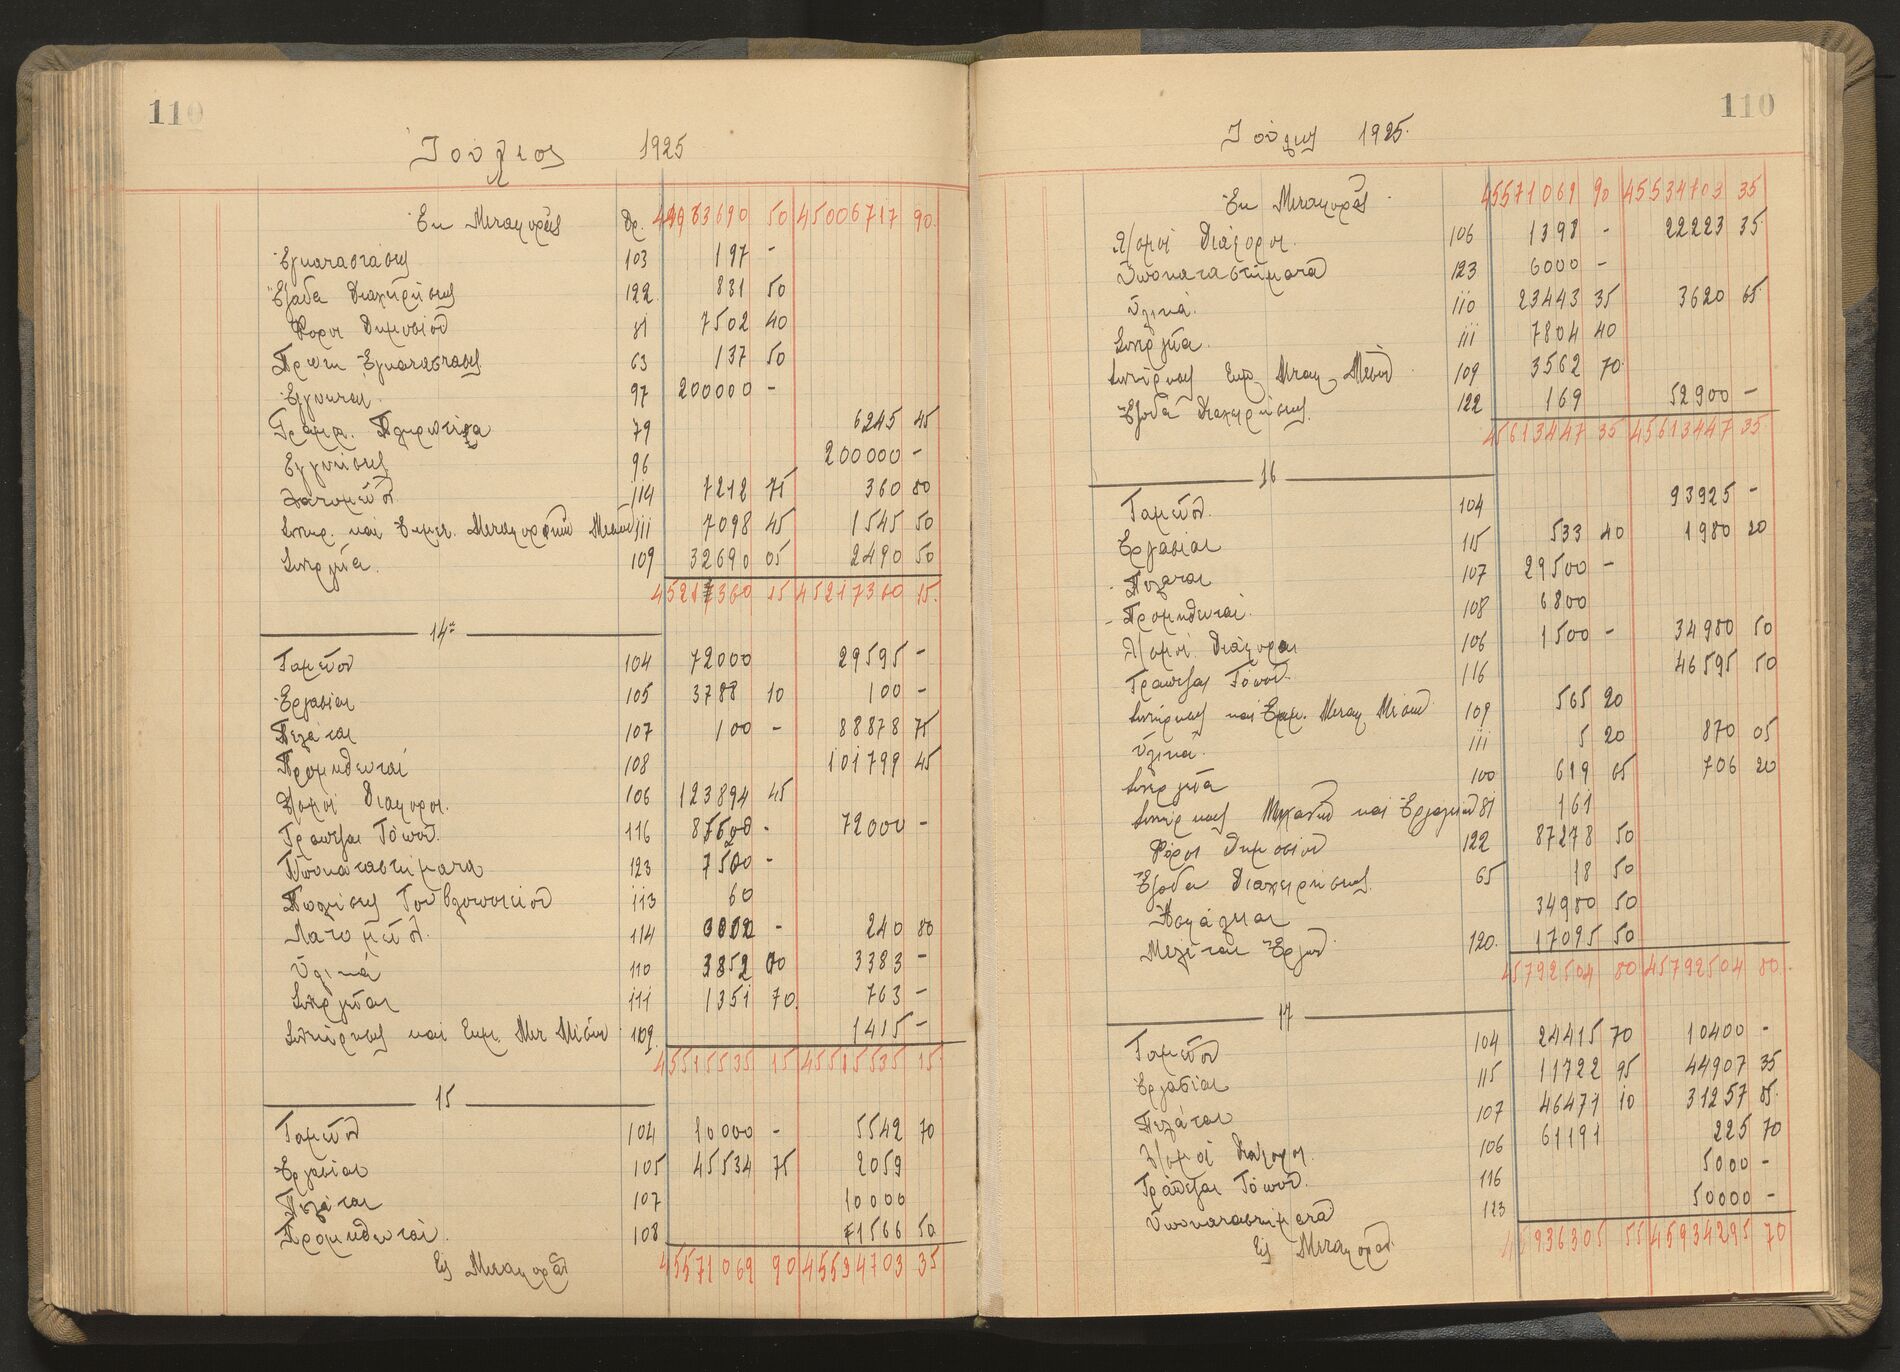 110
Ἰούλιος 1925
Εκ Μεταφορᾶς Δρ. 44983690 50 45006717 90
Εγκαταστάσεις 103 197 -
Ἔξοδα Διαχειρήσεως 122 831 50
Φόροι Δημοσίου 81 7502 40
Πρώτη Ἐγκατάστασις 63 137 50
Εγγυηταί 97 200000 -
Γραμμ. Πληρωτέα 79 6245 45
Εγγυήσεις 96 200000 -
Λατομεῖον 114 7212 75 360 80
Συντηρ. καὶ Εκμετ. Μεταφορικῶν Μέσων 111 7098 45 1545 50
Συνεργεῖα 109 32690 05 2490 50
45217360 15 45217360 15
14
Ταμεῖον 104 72000 29595 -
Εργασίαι 105 3788 10 100 -
Πελάται 107 100 - 88878 75
Προμηθευταί 108 101799 45
Λ/σμοί Διάφοροι 106 123894 45
Τράπεζαι Τόπου 116 87500 - 72000 -
Ὑποκαταστήματα 123 7500 -
Πωλήσεις Τουβλοποιείου 113 60
Λατομεῖον 114 - 240 80
Ὑλικά 110 3852 3383 -
Συνεργεῖαι 111 1351 70 763 -
Συντήρησις και Εκμ. Μετ Μέσων 109 1415 -
45515535 15 45515535 15
15
Ταμεῖον 104 10000 - 5542 70
Εργασίαι 105 45534 75 2059
Πελάται 107 10000
Προμηθευταί 108 1566 50
Εἰς Μεταφοράν 45571069 90 45534703 35
110
Ἰούλιος 1925.
Εκ Μεταφορᾶς 45571069 90 45534703 35
Λ/σμοί Διάφοροι 106 1398 - 22223 35
Ὑποκαταστήματα 123 6000 -
Ὑλικά 110 23443 35 3620 65
Συνεργεῖα 111 7804 40
Συντήρησις Εκμ. Μεταφ. Μέσων 109 3562 70
Ἔξοδα Διαχειρήσεως 122 169 52900 -
45613447 35 45613447 35
16
Ταμεῖον 104 93925 -
Εργασίαι 115 533 40 1980 20
Πελάται 107 29500 -
Προμηθευταί 108 6800
Λ/σμοί Διάφοροι 106 1500 - 34980 50
Τράπεζαι Τόπου 116 46595 50
Συντήρησις καὶ Εκμ. Μεταφ Μέσων 109 565 20
Ὑλικά 111 5 20 870 05
Συνεργεῖα 100 619 65 706 20
Συντήρησις Μηχανῶν καὶ Εργαλείων 81 161
Φόροι Δημοσίου 122 87278 50
Ἔξοδα Διαχειρήσεως 65 18 50
Ἀσφάλειαι 34980 50
Μελέται Ἔργων 120 17095 50
45792504 80 45792504 80
17
Ταμεῖον 104 24415 70 10400 -
Εργασίαι 115 11722 95 44907 35
Πελάται 107 46471 10 31257 85
Λ/σμοί Διάφοροι 106 61191 225 70
Τράπεζαι Τόπου 116 5000 -
Ὑποκαταστήματα 123 50000 -
Εἰς Μεταφοράν 45936305 55 45934295 70